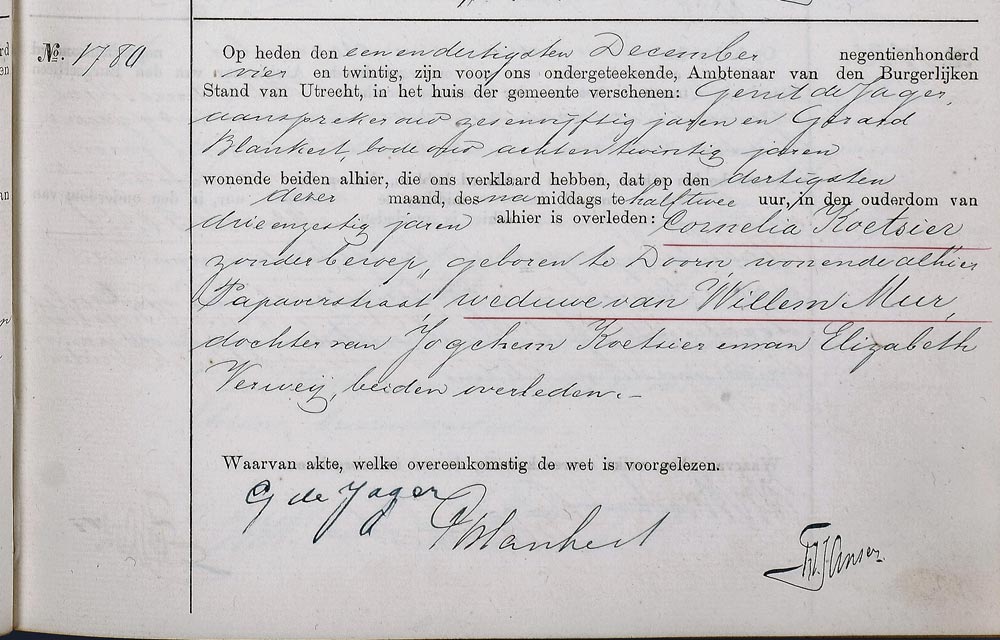 No. 1780
Op heden den een en dertigsten December negentienhonderd
vier en twintig, zijn voor ons ondergeteekende, Ambtenaar van den Burgerlijken
Stand van Utrecht, in het huis der gemeente verschenen: Gerrit de Jager,
aanspreker oud zesenvijftig jaren en Gerard
Blankert, bode oud achtentwintig jaren
wonende beiden alhier, die ons verklaard hebben, dat op den dertigsten
dezer maand, des namiddags te half twee uur, in den ouderdom van
drieenzestig jaren alhier is overleden: Cornelia Koetsier
zonder beroep, geboren te Doorn, wonende alhier
Papaverstraat, weduwe van Willem Mur,
dochter van Jogchem Koetsier en van Elizabeth
Verweij, beiden overleden.-
Waarvan akte, welke overeenkomstig de wet is voorgelezen.
G de Jager
Blankert